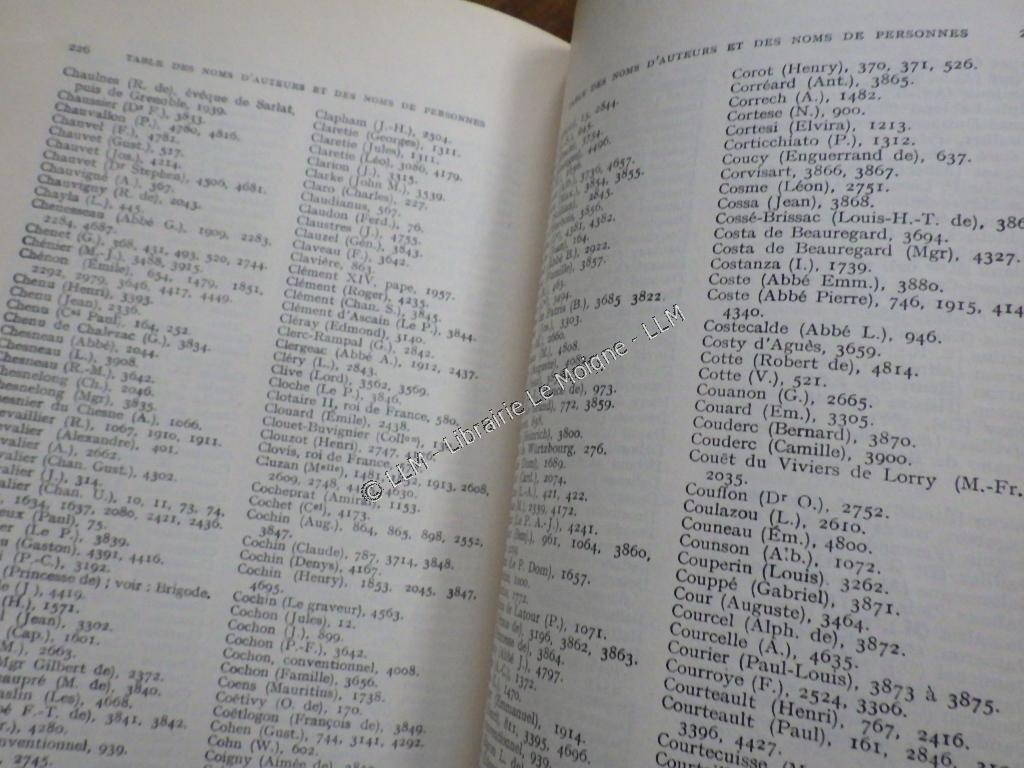 226
TABLE DES NOMS D'AUTEURS ET DES NOMS DE PERSONNES
Chaulnes (R. de), évêque de Sarlat,
puis de Grenoble, 1939.
Chaussier (Dr F.), 3833.
Chauvallon (P.), 4780, 4816.
Chauvel (F.), 4781.
Chauvet (Gust.), 517.
Chauvet (Jos.), 4214.
Chauvet (Dr Stephen), 4506, 4681.
Chauvigné (A.), 367.
Chauvigny (R. de), 2043.
Chayla (L.), 445.
Chenesseau (Abbé G.), 1909, 2283,
2284, 4687.
Chenet (G.), 368, 431, 493, 520, 2744.
Chénier (M.-J.), 3488, 3915.
Chénon (Émile), 654, 1479, 1851,
2292, 2979, 3646, 4417, 4449.
Chenu (Henri), 3393.
Chenu (Jean), 2336.
Chenu (Cst Paul), 164, 252.
Chenu de Chalerzac (G.), 3834.
Chesneau (Abbé), 2044.
Chesneau (L.), 3908.
Chesneau (R.-M.), 3642.
Chesnelong (Ch.), 2046.
Chesnelong (Mgr), 3835.
hesnier du Chesne (A.), 1066.
evaillier (R.), 1067, 1910, 1911.
evalier (Alexandre), 401.
valier (A.), 2662.
valier (Chan. Gust.), 4302.
alier (J.), 314.
alier (Chan. U.), 10, 11, 73, 74,
, 1634, 1637, 2080, 2421, 2436.
eux (Paul), 75.
er (Le P.), 3839.
u (Gaston), 4391, 4416.
i (P.-C.), 3192.
(Princesse de) ; voir : Brigode.
e (J.), 4419.
(H.), 1571.
(Jean), 3302.
(Cap.), 1601.
M.), 2663.
Mgr Gilbert de), 2372.
eaupré (M. de), 3840.
aslin (Les), 4668.
é F.-T. de), 3841, 3842.
r.), 4280.
nventionnel, 939.
, 2745.
Clapham (J.-H.), 2504.
Claretie (Georges), 1311.
Claretie (Jules), 1311.
Claretie (Léo), 1086, 4179.
Clarion (J.), 3315.
Clarke (John M.), 3539.
Claro (Charles), 227.
Claudianus, 567.
Claudon (Ferd.), 76.
Claustres (J.), 4755.
Clauzel (Gén.), 3843.
Claveau (F.), 3642.
Clavière, 863.
Clément XIV, pape, 1957.
Clément (Roger), 4235.
Clément (Chan. S.), 3845.
Clément d'Ascain (Le P.), 3844.
Cléray (Edmond), 3140.
Clerc-Rampal (G.), 2842.
Clergeac (Abbé A.), 1912, 2437.
Cléry (L.), 2843.
Clive (Lord), 3562, 3569.
Cloche (Le P.), 3846.
Clotaire II, roi de France, 580.
Clouard (Émile), 2438.
Clouet-Buvignier
Clouzot (Henri), 2747,
Clovis, roi de France,
Cluzan (Mlle), 1481, 1913, 2608,
2609, 2748, 4630.
Cocheprat (Amiral), 1153.
Cochet (Cel), 4173.
Cochin (Aug.), 864, 865, 898, 2552,
3847.
Cochin (Claude), 787, 3714, 3848.
Cochin (Denys), 4167.
Cochin (Henry), 1853, 2045, 3847,
4695.
Cochin (Le graveur), 4563.
Cochon (Jules), 12.
Cochon (J.), 899.
Cochon (P.-F.), 3642.
Cochon, conventionnel, 4008.
Cochon (Famille), 3656.
Coens (Mauritius), 1738.
Coëtivy (O. de), 170.
Coëtlogon (François de), 3849.
Cohen (Gust.), 744, 3141, 4292.
Cohn (W.), 602.
Coigny (Aimée de)
TABLE DES NOMS D'AUTEURS ET DES NOMS DE PERSONNES
13, 2844.
3734.
4496.
3730, 4657.
3854, 3855.
2045.
3856.
4381, 4382.
164.
é B.), 2922.
amille), 3857.
463.
3494.
Patris (B.), 3685 3822.
3303.
2660.
4808.
de), 973.
772, 3859.
einrich), 3800.
Wurtzbourg, 276.
Dom), 1689.
4074.
L.-A.), 421, 422.
1342.
Le P. A.-J.), 4241.
961, 1064, 3860,
Le P. Dom), 1657.
1000.
1772.
de Latour (P.), 1071.
3196, 3862, 3863.
de), 3864.
J.), 4797.
1372.
1470.
Emmanuel), 1914.
811, 3395, 4696.
nventionnel, 939.
Corot (Henry), 370, 371, 526.
Corréard (Ant.), 3865.
Correch (A.), 1482.
Cortese (N.), 900.
Cortesi (Elvira), 1213.
Corticchiato (P.), 1312.
Coucy (Enguerrand de), 637.
Corvisart, 3866, 3867.
Cosme (Léon), 2751.
Cossa (Jean), 3868.
Cossé-Brissac (Louis-H.-T. de),
Costa de Beauregard, 3694.
Costa de Beauregard (Mgr), 4327.
Costanza (I.), 1739.
Coste (Abbé Emm.), 3880.
Coste (Abbé Pierre), 746, 1915,
4340.
Costecalde (Abbé L.), 946.
Costy d'Aguès, 3659.
Cotte (Robert de), 4814.
Cotte (V.), 521.
Couanon (G.), 2665.
Couard (Em.), 3305.
Couderc (Bernard), 3870.
Couderc (Camille), 3900.
Couët du Viviers de Lorry (M.-Fr.
2035.
Couffon (Dr O.), 2752.
Coulazou (L.), 2610.
Couneau (Ém.), 4800.
Counson (Alb.), 1072.
Couperin (Louis) 3262.
Couppé (Gabriel), 3871.
Cour (Auguste), 3464.
Courcel (Alph. de), 3872.
Courcelle (A.), 4635.
Courier (Paul-Louis), 3873 à 3875.
Courroye (F.), 2524, 3306.
Courteault (Henri), 767, 2416.
Courteault (Paul), 161, 2846,
3396, 4427.
Courtecuisse
© LLM - Librairie Le Moigne - LLM